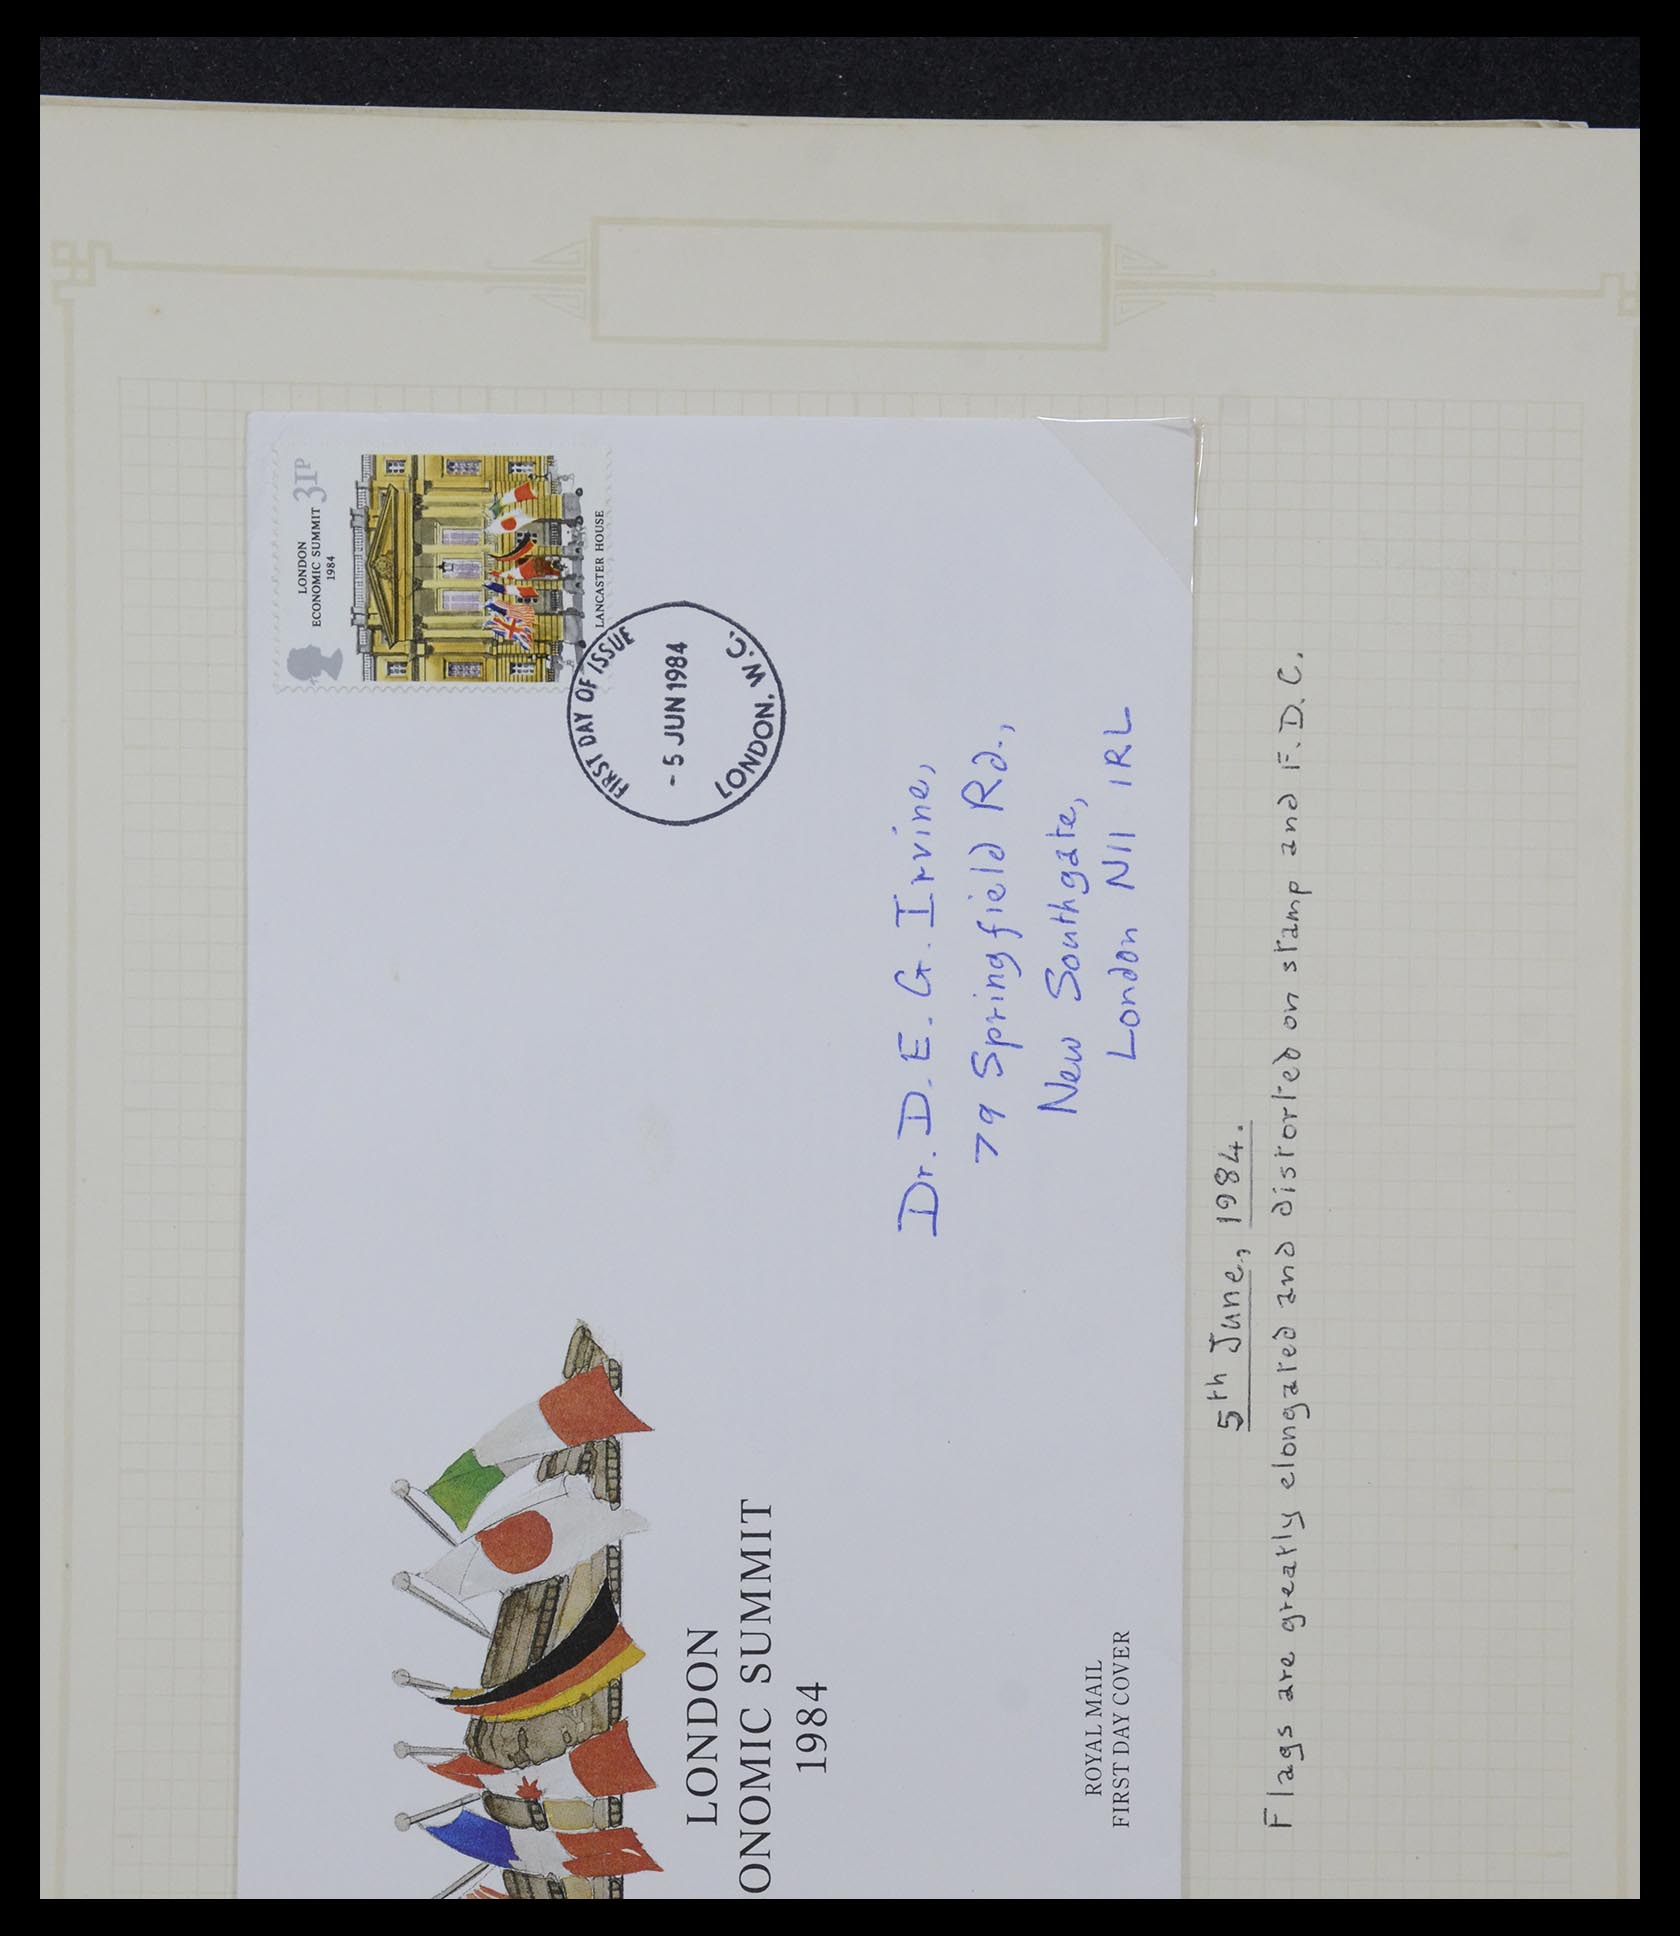 LONDON
ECONOMIC SUMMIT
1984
31P
LANCASTER HOUSE
FIRST DAY OF ISSUE
- 5 JUN 1984
LONDON. W.C.
Dr. D. E. G. Irvine,
79 Springfield Rd.,
New Southgate,
London N11 1RL
LONDON
ONOMIC SUMMIT
1984
ROYAL MAIL
FIRST DAY COVER
5th June, 1984.
Flags are greatly elongated and distorted on stamp and F.D.C.